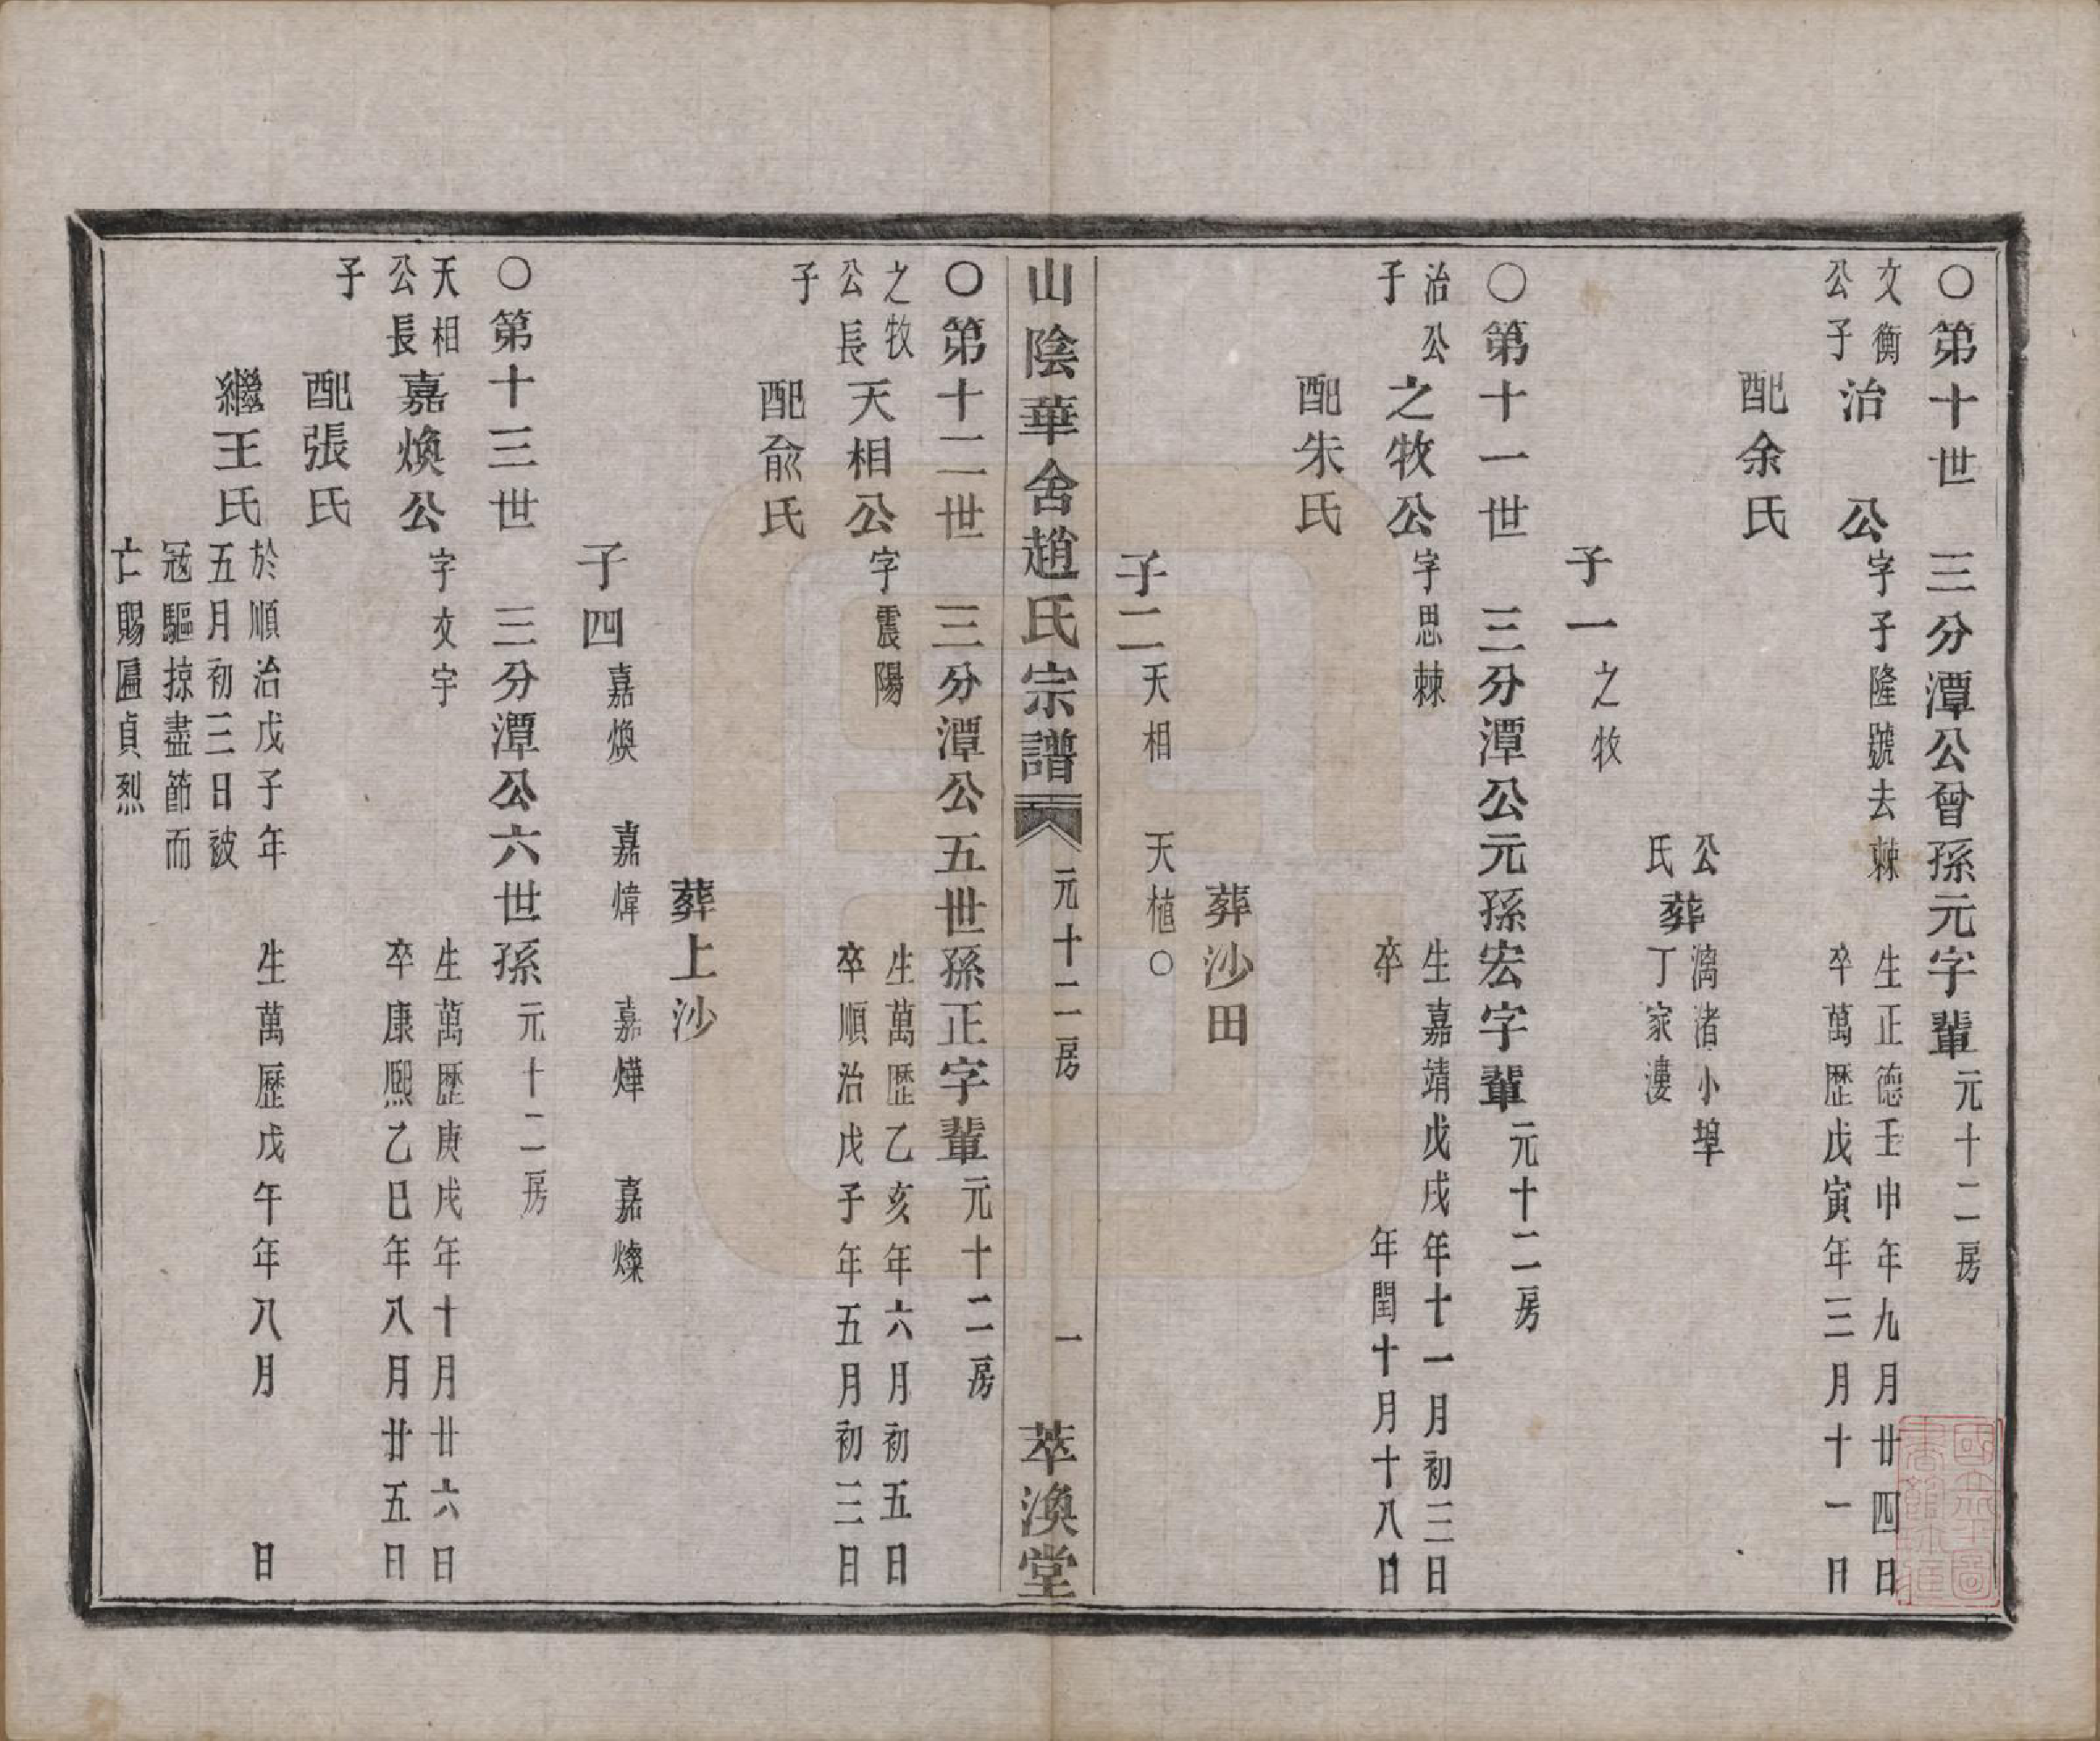 〇第十世　三分潭公曾孫元字輩元十二房
文衡
公子
治　公
字子隆號去棘
生正德壬申年九月廿四日
卒萬歷戊寅年三月十一日
配余氏
公
氏
葬
漓渚小埠
丁家漊
子一之牧
〇第十一世　三分潭公元孫宏字輩元十二房
治公
子
之牧公
字思棘
生嘉靖戊戌年十一月初三日
卒　年閏十月十八日
配朱氏
葬沙田
子二天相　天植〇
山陰華舍趙氏宗譜　元十二房　一　萃渙堂
〇第十二世　三分潭公五世孫正字輩元十二房
之牧
公長
子
天相公
字震陽
生萬歷乙亥年六月初五日
卒順治戊子年五月初三日
配俞氏
葬上沙
子四嘉煥　嘉煒　嘉燁　嘉燦
〇第十三世　三分潭公六世孫元十二房
天相
公長
子
嘉煥公
字文宇
生萬歷庚戌年十月廿六日
卒康熙乙巳年八月廿五日
配張氏
繼王氏
於順治戊子年
五月初三日被
寇驅掠盡節而
亡賜匾貞烈
生萬歷戊午年八月　日